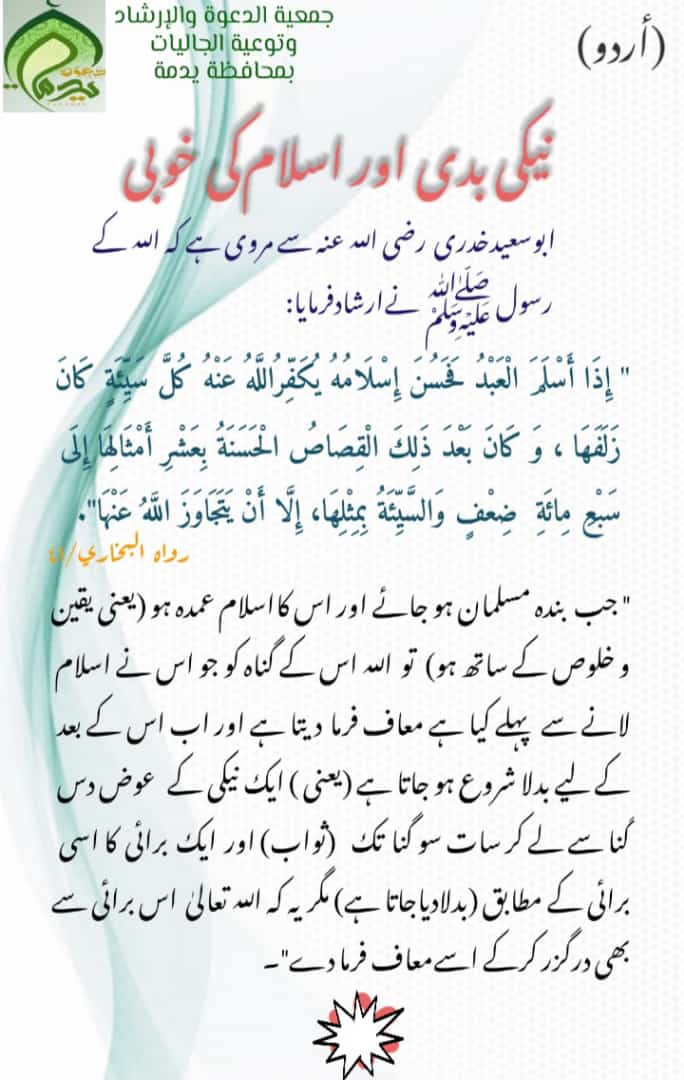 جمعية الدعوة والإرشاد
وتوعية الجاليات
بمحافظة يدمة
(أردو)
نیکی بدی اور اسلام کی خوبی
ابو سعید خدری رضی اللہ عنہ سے مروی ہے کہ اللہ کے
رسول صَلَّى اللَّهُ عَلَيْهِ وَسَلَّمَ نے ارشاد فرمایا:
" إِذَا أَسْلَمَ الْعَبْدُ فَحَسُنَ إِسْلَامُهُ يُكَفِّرُ اللَّهُ عَنْهُ كُلَّ سَيِّئَةٍ كَانَ
زَلَفَهَا ، وَ كَانَ بَعْدَ ذَلِكَ الْقِصَاصُ الْحَسَنَةُ بِعَشْرِ أَمْثَالِهَا إِلَى
سَبْعِ مِائَةِ ضِعْفٍ وَالسَّيِّئَةُ بِمِثْلِهَا، إِلَّا أَنْ يَتَجَاوَزَ اللَّهُ عَنْهَا".
رواه البخاري/٤١
" جب بندہ مسلمان ہو جائے اور اس کا اسلام عمدہ ہو (یعنی یقین
و خلوص کے ساتھ ہو) تو اللہ اس کے گناہ کو جو اس نے اسلام
لانے سے پہلے کیا ہے معاف فرما دیتا ہے اور اب اس کے بعد
کے لیے بدلا شروع ہو جاتا ہے (یعنی ) ایک نیکی کے عوض دس
گنا سے لے کر سات سو گنا تک (ثواب) اور ایک برائی کا اسی
برائی کے مطابق (بدلا دیا جاتا ہے) مگر یہ کہ اللہ تعالیٰ اس برائی سے
بھی درگزر کر کے اسے معاف فرما دے"۔